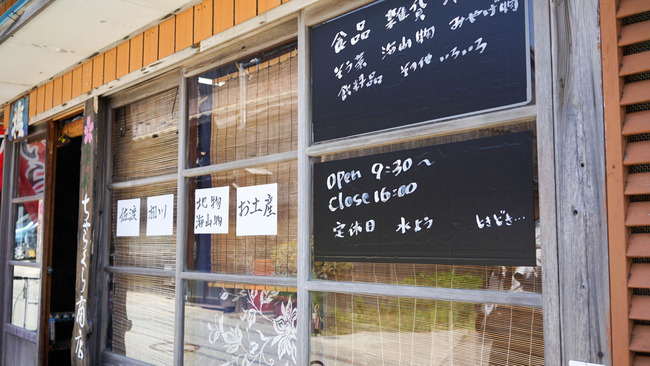 ちぐさ商店
佐渡
相川
地物
海山物
お土産
食品 雑貨
そう菜 海山物 みやげ物
飲料品 その他いろいろ
Open 9:30~
Close 16:00
定休日 水よう ときどき…